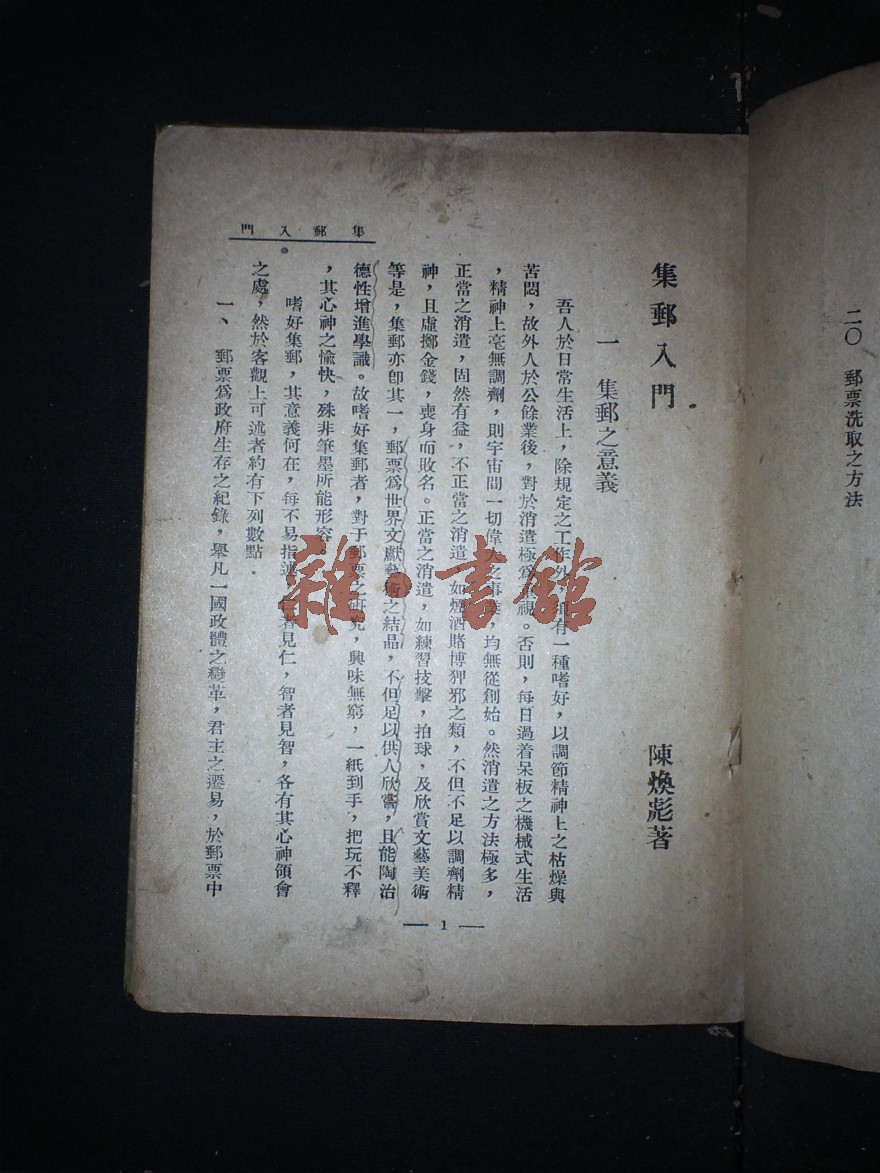 二〇 郵票洗取之方法
集郵入門
陳煥彪著
一 集郵之意義
吾人於日常生活上，除規定之工作外，須有一種嗜好，以調節精神上之枯燥與
苦悶，故外人於公餘業後，對於消遣極爲重視。否則，每日過着呆板之機械式生活
，精神上毫無調劑，則宇宙間一切偉大之事業，均無從創始。然消遣之方法極多，
正當之消遣，固然有益，不正當之消遣，如煙酒賭博狎邪之類，不但不足以調劑精
神，且虛擲金錢，喪身而敗名。正當之消遣，如練習技擊，拍球，及欣賞文藝美術
等是，集郵亦卽其一，郵票爲世界文獻藝術之結晶，不但足以供人欣賞，且能陶治
德性增進學識。故嗜好集郵者，對于郵票之研究，興味無窮，一紙到手，把玩不釋
，其心神之愉快，殊非筆墨所能形容。
嗜好集郵，其意義何在，每不易指述，仁者見仁，智者見智，各有其心神領會
之處，然於客觀上可述者約有下列數點．
一、郵票爲政府生存之紀錄，舉凡一國政體之變革，君主之遷易，於郵票中
集郵入門
— 1 —
雜·書館